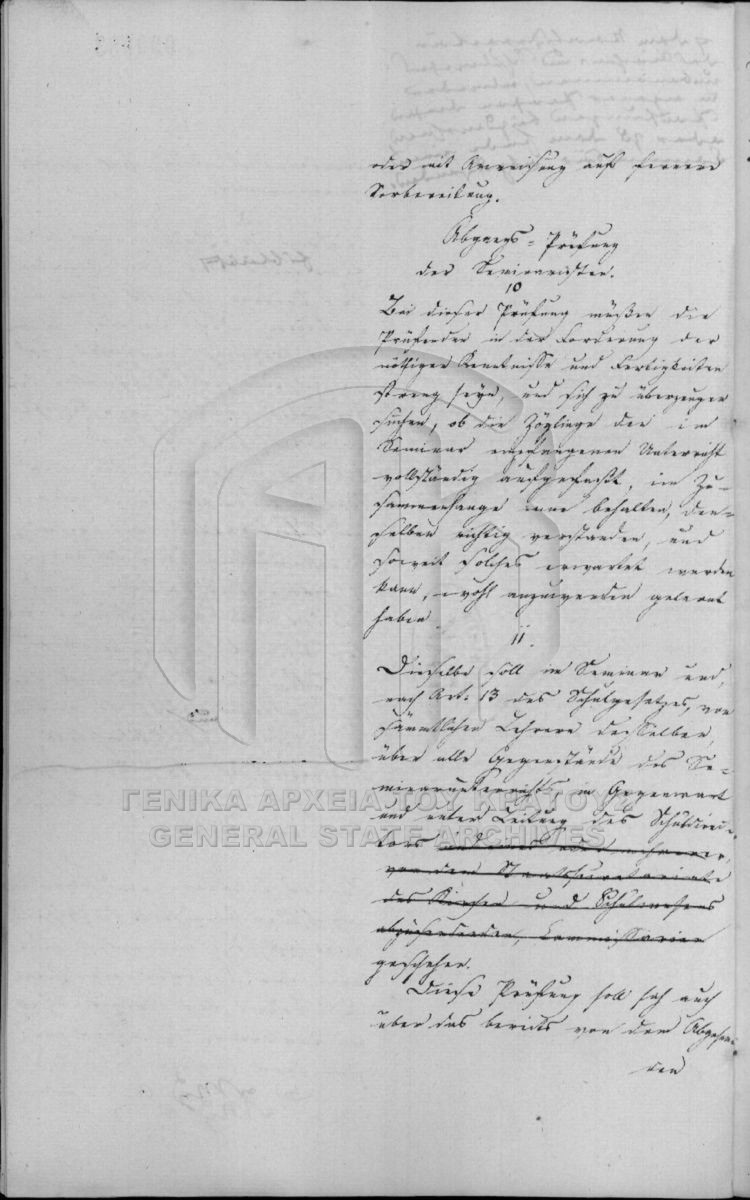 oder mit Anweisung auf fernere
Vorbereitung.
Abgangs-Prüfung
der Seminaristen.
10
Bei dieser Prüfung müßen die
Prüfenden in der Forderung der
nöthigen Kenntnisse und Fertigkeiten
streng seyn, und sich zu überzeugen
suchen, ob die Zöglinge den im
Seminar empfangenen Unterricht
vollständig aufgefaßt, im Zu-
sammenhange inne behalten, den-
selben richtig verstanden, und
soweit solches erwartet werden
kann, wohl anzuwenden gelernt
haben.
11.
Dieselbe soll im Seminar und,
nach Art: 13 des Schulgesetzes, von
sämmtlichen Lehrern desselben,
über alle Gegenstände des Se-
minarunterrichts in Gegenwart
und unter Leitung des Schuldirec-
tors und
von dem Staatssecretariate
des Kirchen und Schulwesens
abzusendenden, Commissarien
geschehen.
Diese Prüfung soll sich auch
über das bereits von dem Abgehen-
den
ΓΕΝΙΚΑ ΑΡΧΕΙΑ ΤΟΥ ΚΡΑΤΟΥΣ
GENERAL STATE ARCHIVES